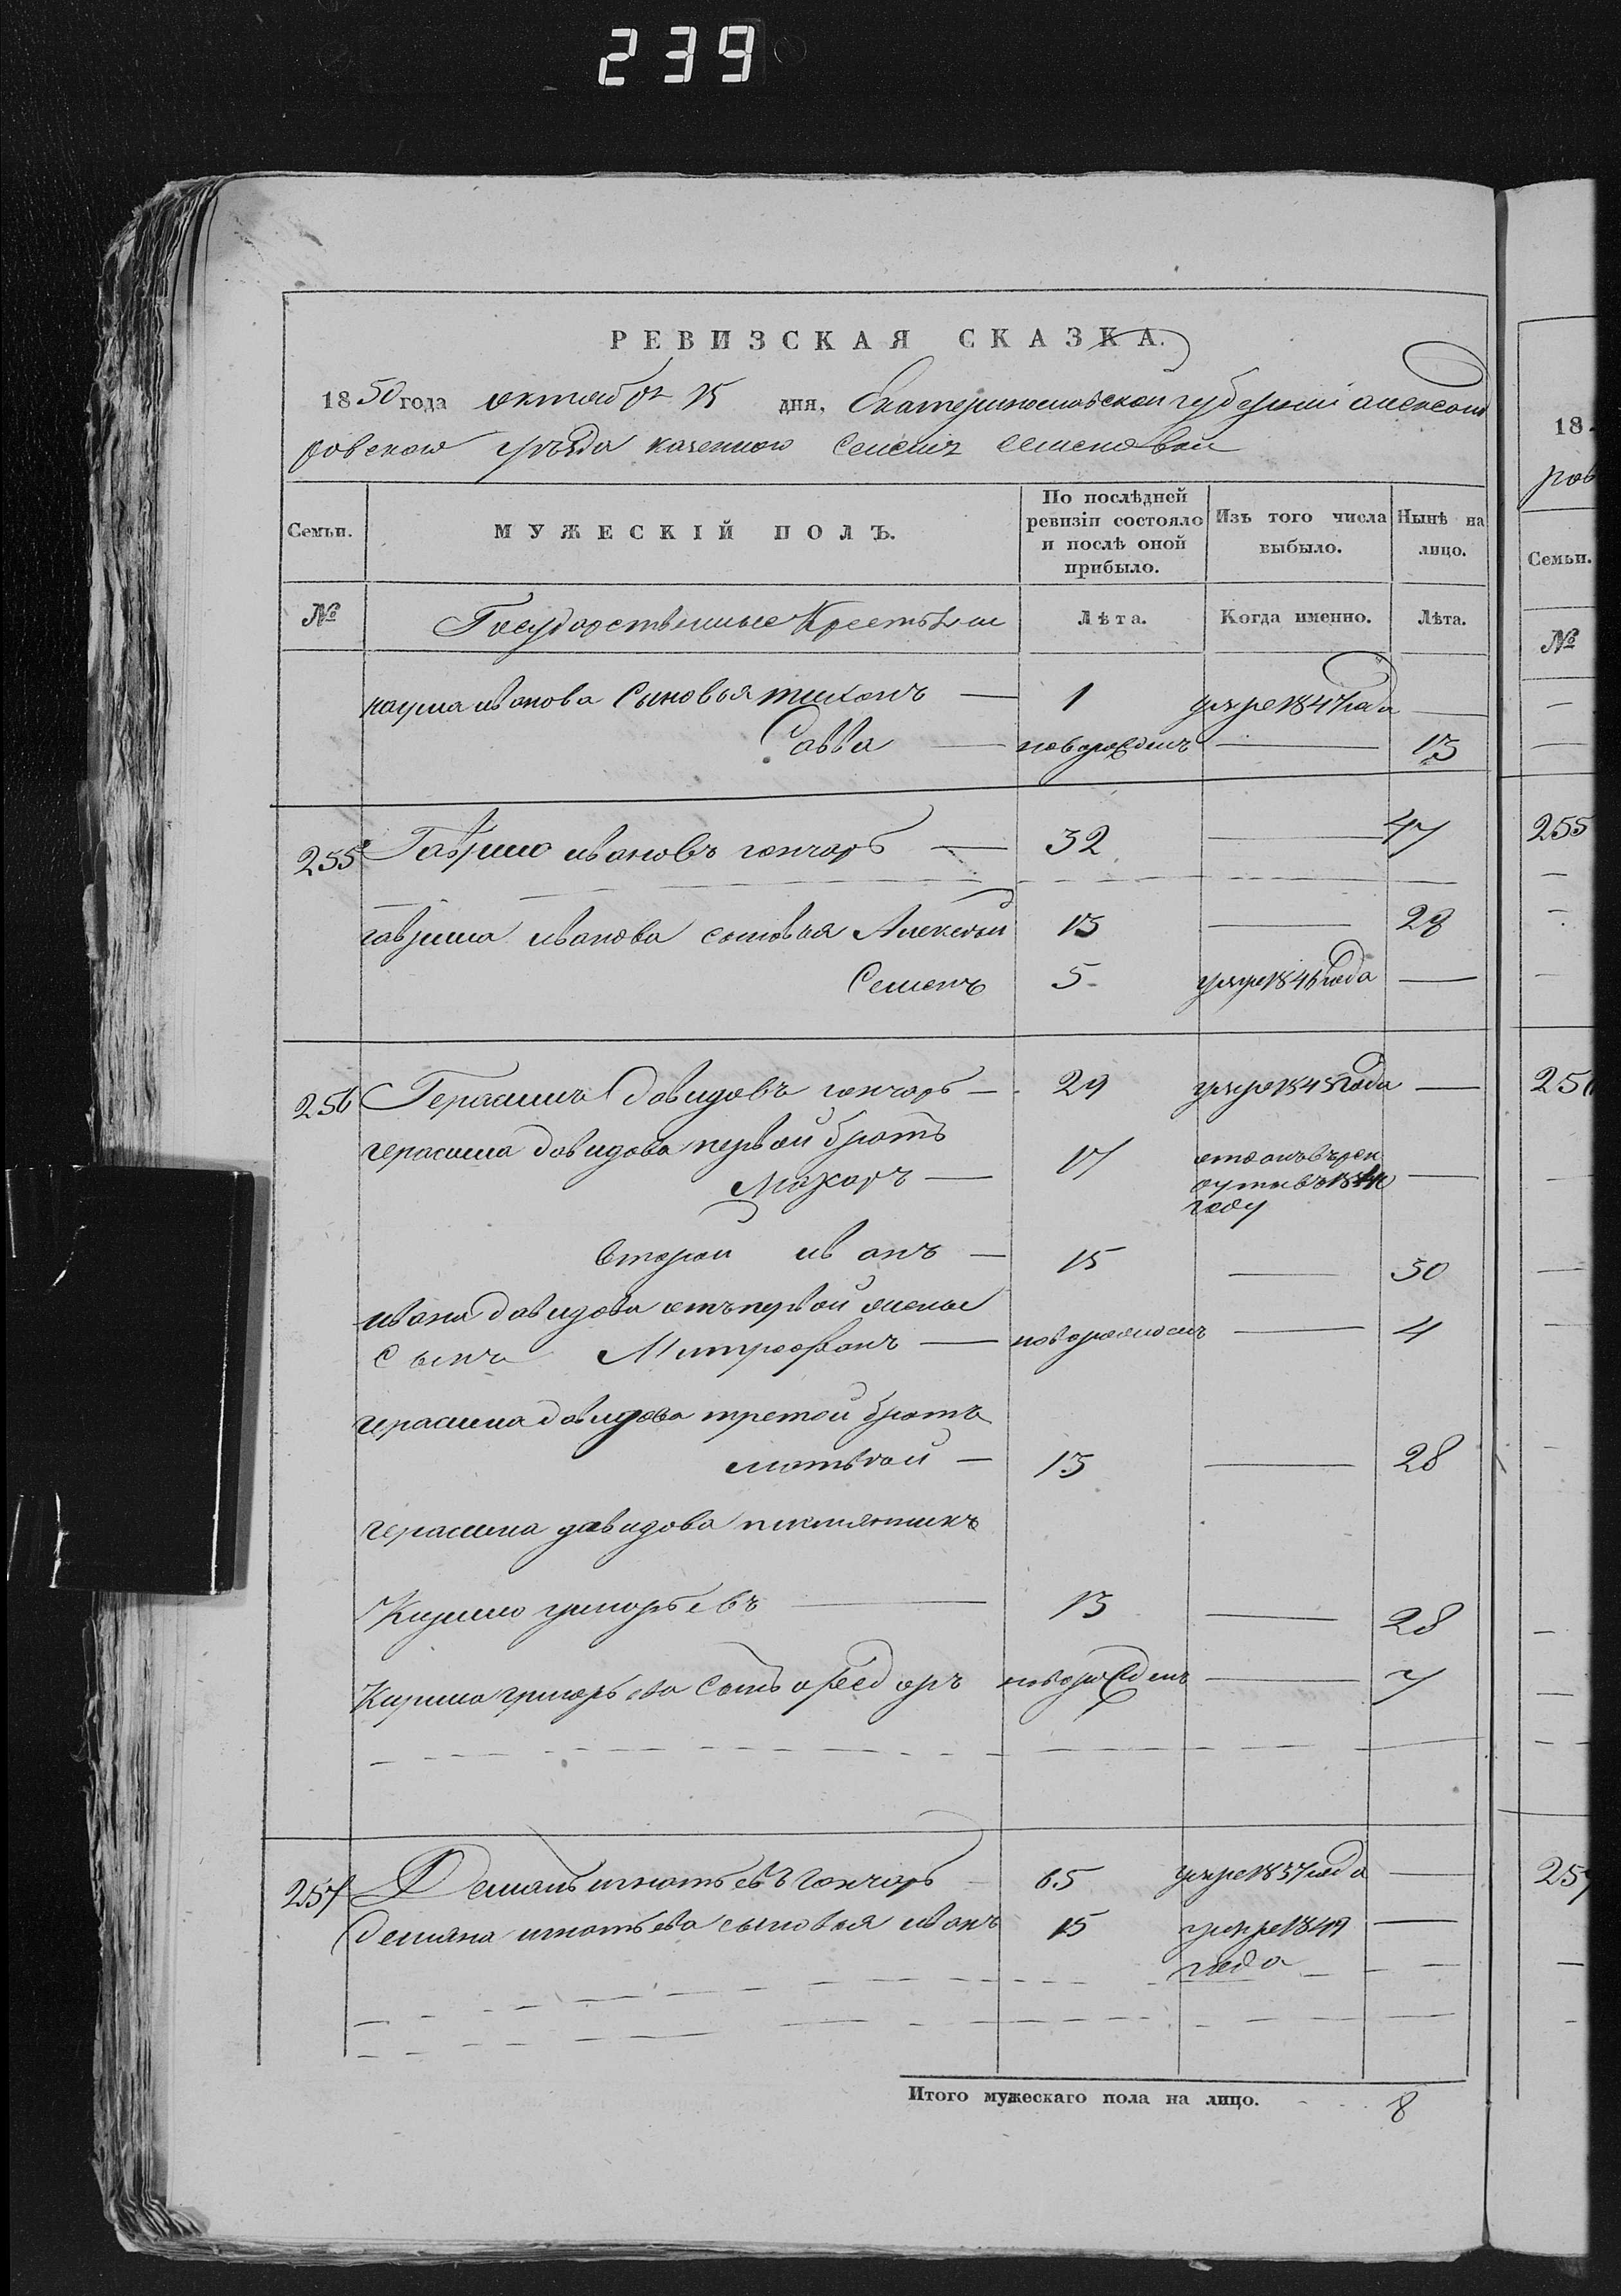 239
РЕВИЗСКАЯ СКАЗКА.
1850 года октября 15 дня, Екатеринославской губернии Александ
ровского уѣзда казенного Селенія Семеновки
Семьи. МУЖЕСКІЙ ПОЛЪ. По послѣдней ревизіи состояло и послѣ оной прибыло. Изъ того числа выбыло. Нынѣ на лицо.
№ Государственные Крестьяне Лѣта. Когда именно. Лѣта.
наума иванова Сыновья тихонъ — 1 умре 1847 года —
Савва — новорожденъ — 13
255 Гаврило ивановъ гончаръ — 32 — 47
гаврила иванова сыновья Алексѣй 13 — 28
Семенъ 5 умре 1846 года —
256 Герасимъ Давидовъ гончаръ — 29 умре 1845 года —
герасима давидова первой братъ
Макаръ — 17 отданъ въ рек
руты въ 1840 —
году
второй иванъ — 15 — 30
ивана давидова отъ первой жены
сынъ Митрофанъ — новорожденъ — 4
герасима давидова третой братъ
матвѣй — 13 — 28
герасима давидова племянникъ
Кирило григорьевъ — 13 — 28
Кирила григорьева Сынъ федоръ новорожденъ — 7
257 Демянъ игнатьевъ гончаръ 65 умре 1837 года —
демяна игнатьева сыновья иванъ 15 умре 1849 —
года
Итого мужескаго пола на лицо. 8
18
ров
Семьи.
№
255
256
257